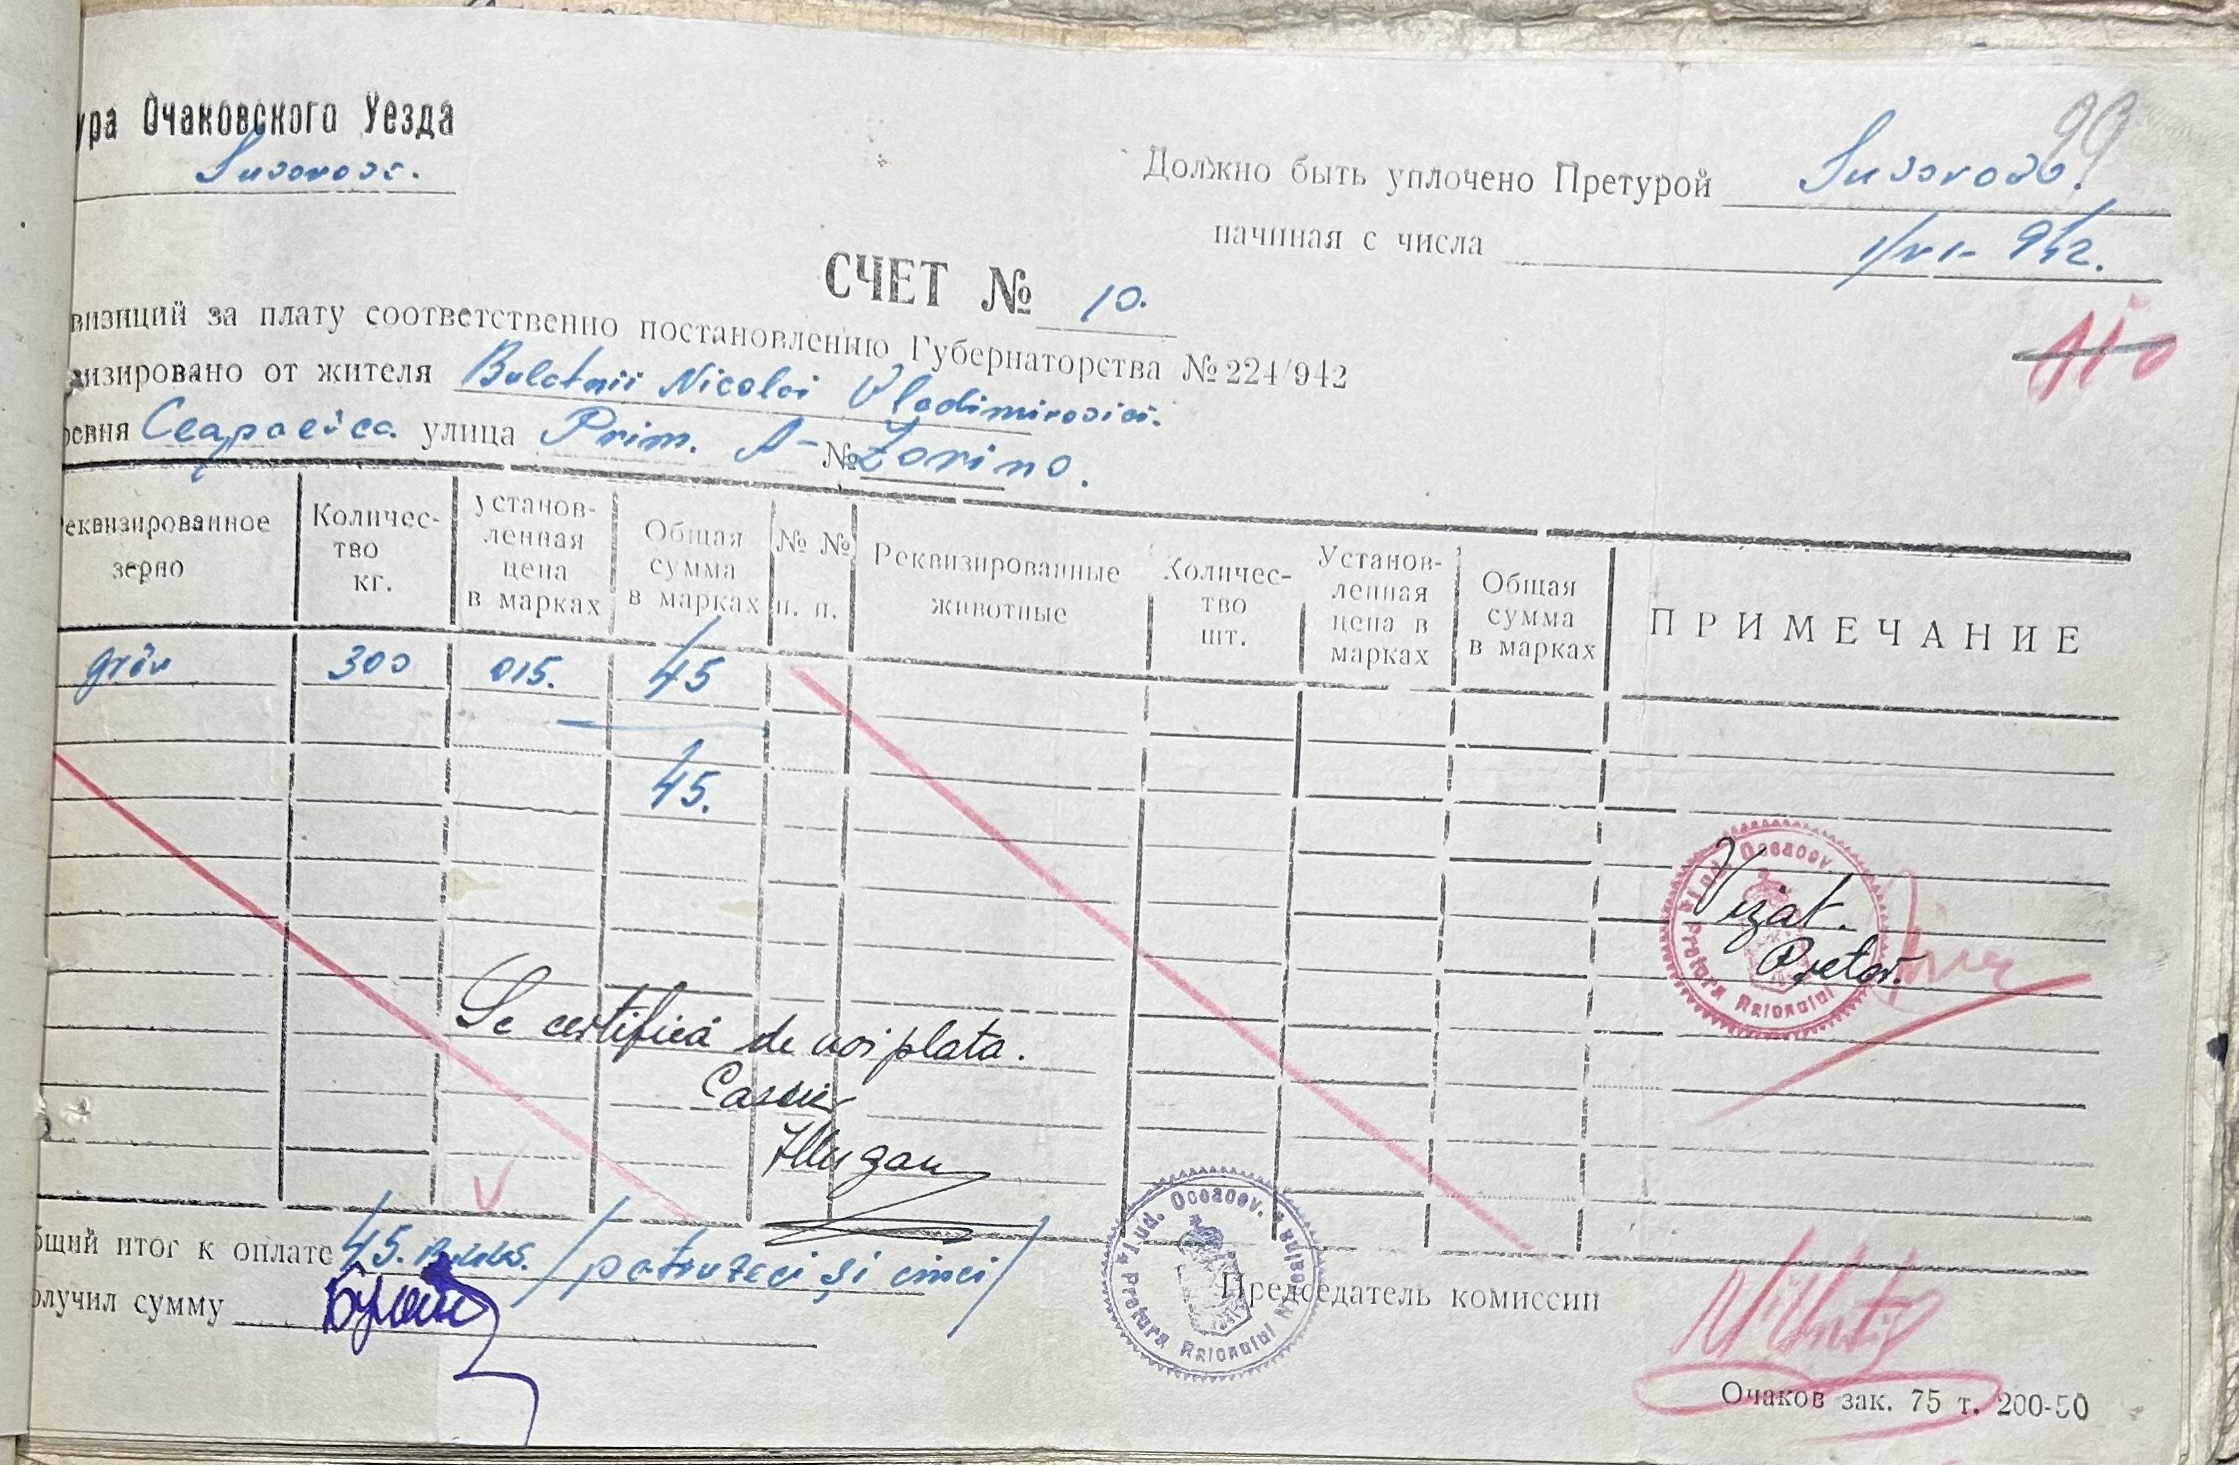 ура Очаковского Уезда
99
Suvorovo.
Должно быть уплочено Претурой Suvorovo.
начиная с числа 1/VI- 942.
СЧЕТ № 10.
визиций за плату соответственно постановлению Губернаторства № 224/942
изировано от жителя Nicolai Vladimirovici.
ревня Ceapaevca. улица Prim. A- № Zorino.
еквизированное зерно
Количес-тво кг.
установ-ленная цена в марках
Общая сумма в марках
№ № п. п.
Реквизированные животные
Количес-тво шт.
Установ-ленная цена в марках
Общая сумма в марках
ПРИМЕЧАНИЕ
grâu 300 015. 45
45.
Vizat.
Pretor.
Pretura Raionului Jud. Oceacov.
Se certifică de noi plata.
Casier
бщий итог к оплате 45. /patruzeci și cinci/
олучил сумму
Председатель комиссии
Pretura Raionului Jud. Oceacov.
Очаков зак. 75 т. 200-50